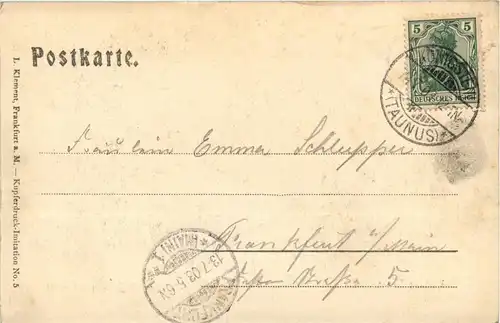 Postkarte.
5 5
DEUTSCHES REICH
*(TAUNUS)*
Fräulein Emma Schlepper
Frankfurt a/Main
Straße 5.
*(MAIN) 1
13.7.03.5-6N
L. Klement, Frankfurt a. M. — Kupferdruck-Imitation No. 5